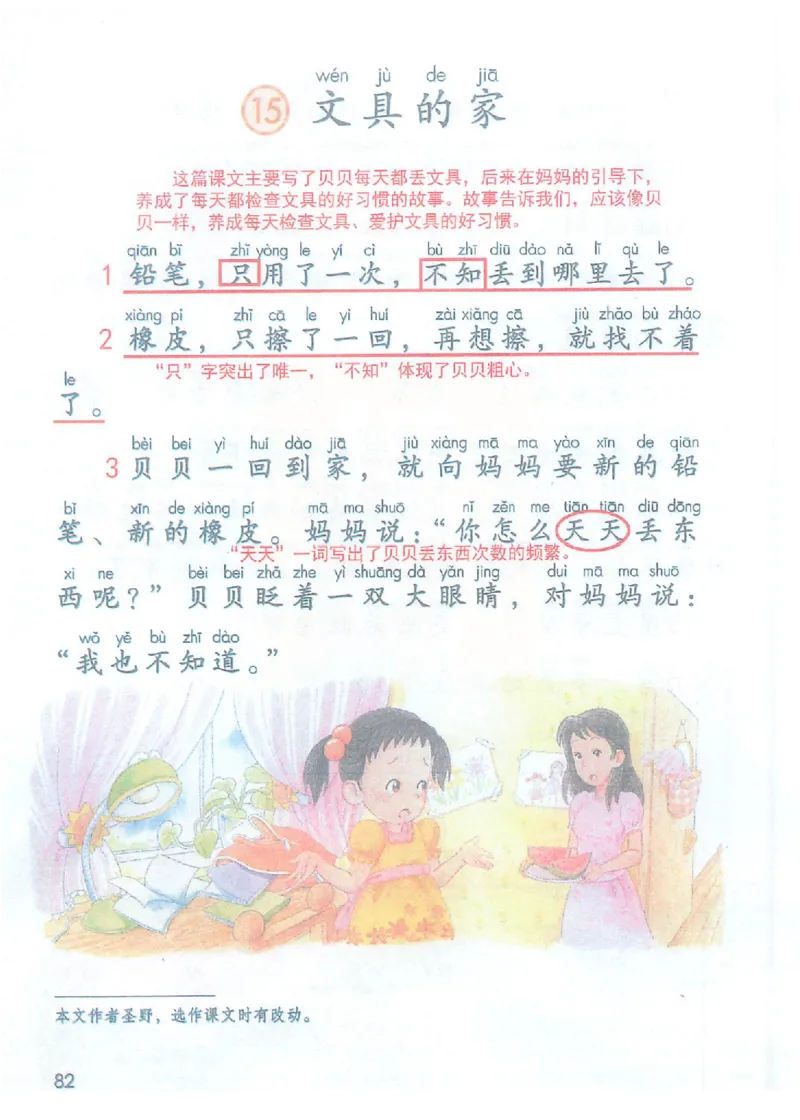 wén jù de jiā
15 文具的家
这篇课文主要写了贝贝每天都丢文具，后来在妈妈的引导下，
养成了每天都检查文具的好习惯的故事。故事告诉我们，应该像贝
贝一样，养成每天检查文具、爱护文具的好习惯。
qiān bǐ zhǐ yòng le yí cì bù zhī diū dào nǎ lǐ qù le
1 铅笔，只用了一次，不知丢到哪里去了。
xiàng pí zhǐ cā le yì huí zài xiǎng cā jiù zhǎo bù zháo
2 橡皮，只擦了一回，再想擦，就找不着
“只”字突出了唯一，“不知”体现了贝贝粗心。
le
了。
bèi bei yì huí dào jiā jiù xiàng mā ma yào xīn de qiān
3 贝贝一回到家，就向妈妈要新的铅
bǐ xīn de xiàng pí mā ma shuō nǐ zěn me tiān tiān diū dōng
笔、新的橡皮。妈妈说：“你怎么天天丢东
“天天”一词写出了贝贝丢东西次数的频繁。
xi ne bèi bei zhǎ zhe yì shuāng dà yǎn jing duì mā ma shuō
西呢？”贝贝眨着一双大眼睛，对妈妈说：
wǒ yě bù zhī dào
“我也不知道。”
本文作者圣野，选作课文时有改动。
82